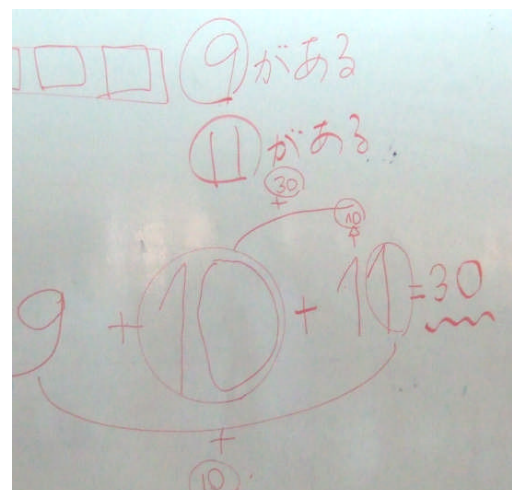 9がある
11がある
30
+
10
9 + 10 + 11 = 30
+
10